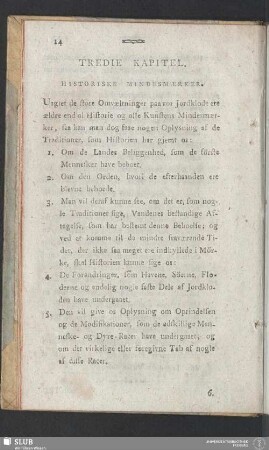 14
TREDIE KAPITEL.
HISTORISKE MINDESMÆRKER.
Uagtet de store Omvæltninger paa vor Jordklode ere
ældre end al Historie og alle Kunstens Mindesmær-
ker, saa kan man dog faae nogen Oplysning af de
Traditioner, som Historien har gjemt os:
1. Om de Landes Beliggenhed, som de første
Mennesker have beboet.
2. Om den Orden, hvori de efterhaanden ere
blevne beboede.
3. Man vil deraf kunne see, om det er, som nog-
le Traditioner sige, Vandenes bestandige Af-
tagelse, som har bestemt denne Beboelse; og
ved at komme til de mindre fraværende Ti-
der, der ikke saa meget ere indhyllede i Mør-
ke, skal Historien kunne sige os:
4. De Forandringer, som Havene, Søerne, Flo-
derne, og endelig nogle faste Dele af Jordklo-
den have undergaaet.
5. Den vil give os Oplysning om Oprindelsen
og de Modifikationer, som de adskillige Men-
neske- og Dyre-Racer have undergaaet, og
om det virkelige eller foregivne Tab af nogle
af disse Racer.
6.
SLUB
Wir führen Wissen.